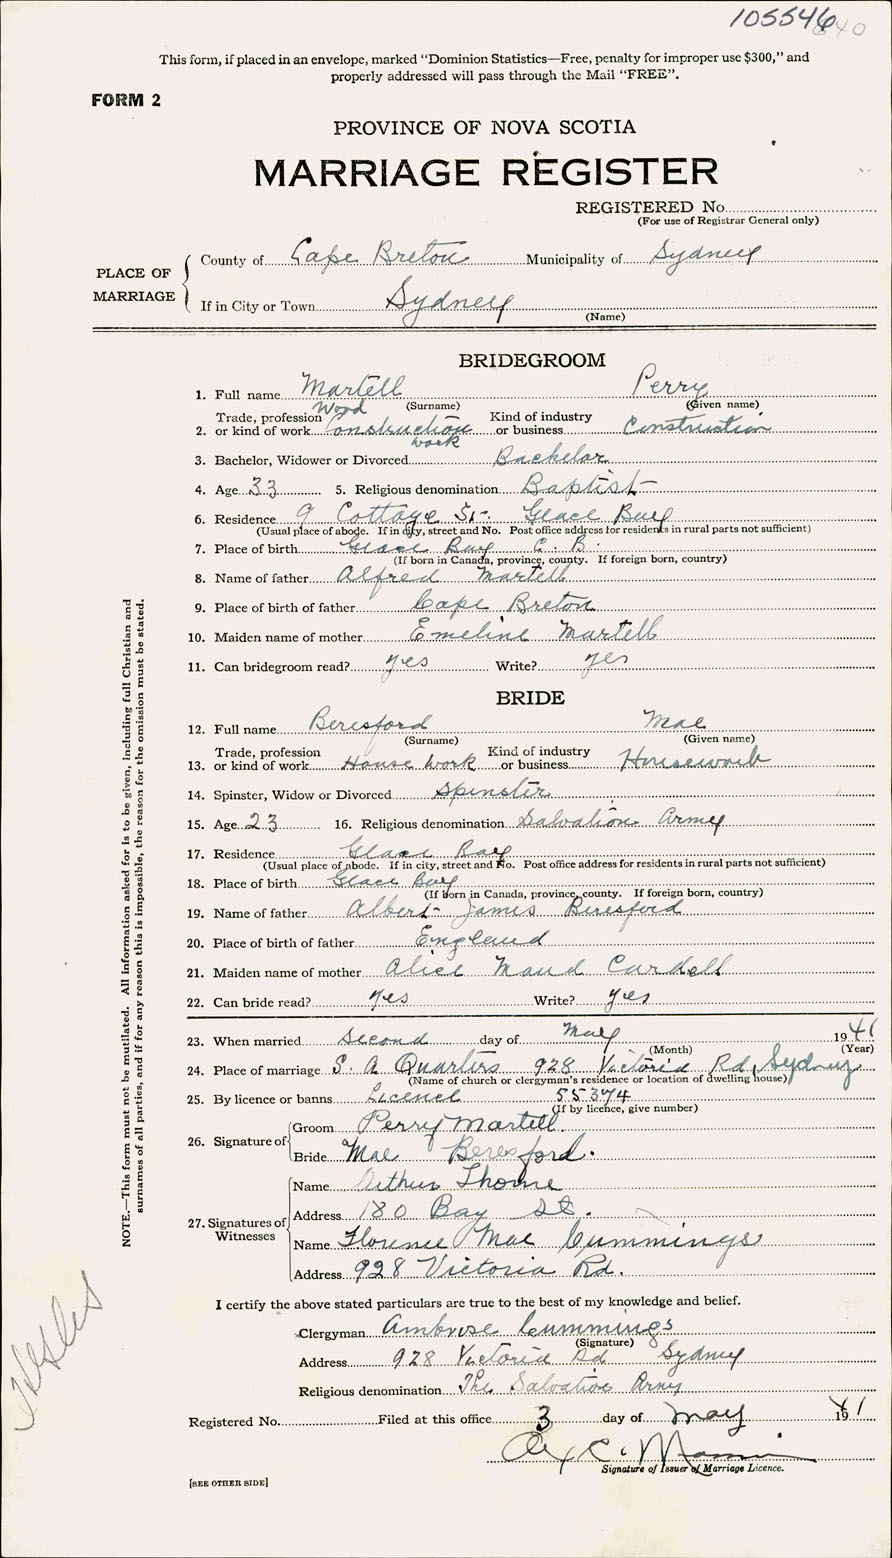 105546
640
This form, if placed in an envelope, marked “Dominion Statistics—Free, penalty for improper use $300,” and
properly addressed will pass through the Mail “FREE”.
FORM 2
PROVINCE OF NOVA SCOTIA
MARRIAGE REGISTER
REGISTERED No.
(For use of Registrar General only)
PLACE OF MARRIAGE
County of Cape Breton Municipality of Sydney
If in City or Town Sydney
(Name)
BRIDEGROOM
1. Full name Martell Perry
(Surname) (Given name)
Wood
2. Trade, profession or kind of work Construction work Kind of industry or business Construction
3. Bachelor, Widower or Divorced Bachelor
4. Age 33 5. Religious denomination Baptist
6. Residence 9 Cottage St. Glace Bay
(Usual place of abode. If in city, street and No. Post office address for residents in rural parts not sufficient)
7. Place of birth Glace Bay C. B.
(If born in Canada, province, county. If foreign born, country)
8. Name of father Alfred Martell
9. Place of birth of father Cape Breton
10. Maiden name of mother Emeline Martell
11. Can bridegroom read? yes Write? yes
BRIDE
12. Full name Beresford Mae
(Surname) (Given name)
13. Trade, profession or kind of work House Work Kind of industry or business Housework
14. Spinster, Widow or Divorced Spinster
15. Age 23 16. Religious denomination Salvation Army
17. Residence Glace Bay
(Usual place of abode. If in city, street and No. Post office address for residents in rural parts not sufficient)
18. Place of birth Glace Bay
(If born in Canada, province, county. If foreign born, country)
19. Name of father Albert James Beresford
20. Place of birth of father England
21. Maiden name of mother Alice Maud Cardell
22. Can bride read? yes Write? yes
23. When married Second day of May 1941
(Month) (Year)
24. Place of marriage S. A Quarters 928 Victoria Rd, Sydney
(Name of church or clergyman's residence or location of dwelling house)
25. By licence or banns Licence 55374
(If by licence, give number)
26. Signature of Groom Perry Martell.
Bride Mae Beresford.
27. Signatures of Witnesses
Name Arthur Thorne
Address 180 Bay St.
Name Florence Mae Cummings
Address 928 Victoria Rd.
I certify the above stated particulars are true to the best of my knowledge and belief.
Clergyman Ambrose Cummings
(Signature)
Address 928 Victoria Rd Sydney
Religious denomination The Salvation Army
Registered No. Filed at this office 3 day of May 1941
Alex C.
Signature of Issuer of Marriage Licence.
[SEE OTHER SIDE]
NOTE.—This form must not be mutilated. All information asked for is to be given, including full Christian and
surnames of all parties, and if for any reason this is impossible, the reason for the omission must be stated.